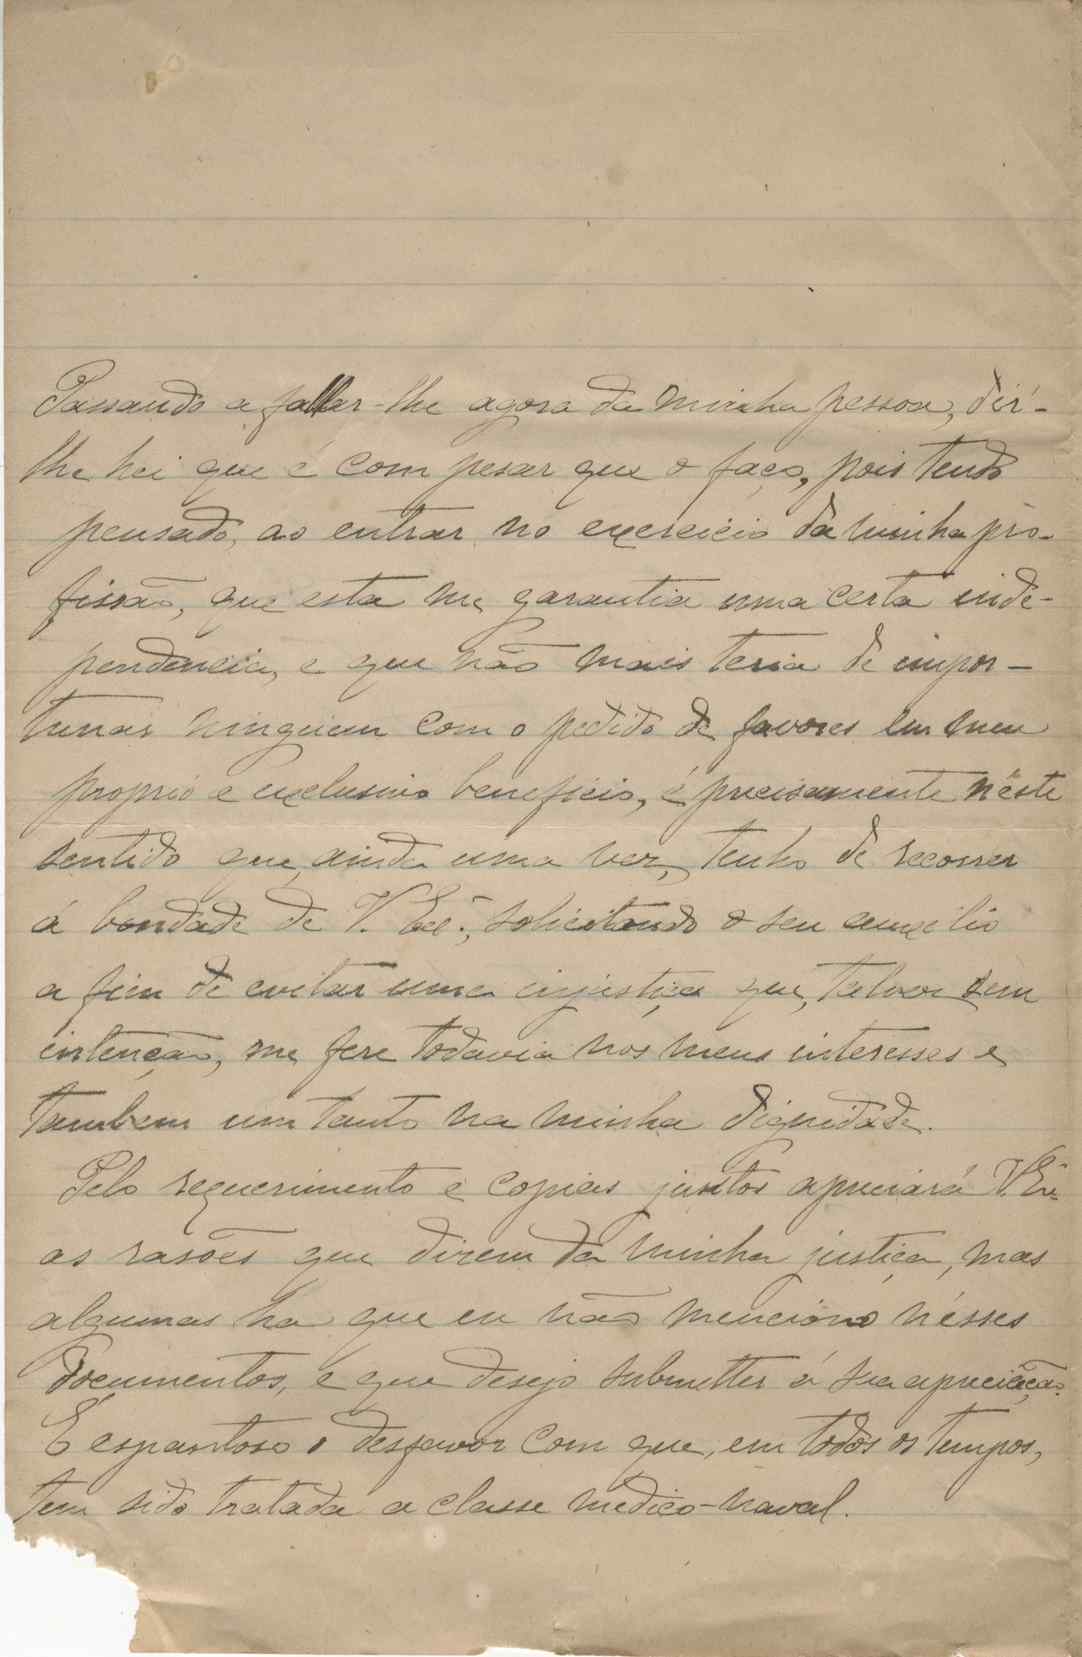 Passando a fallar-lhe agora da minha pessoa, dir-
lhe hei que é com pesar que o faço, pois tendo
pensado, ao entrar no exercicio da minha pro-
fissão, que esta me garantia uma certa inde-
pendencia, e que não mais teria de impor-
tunar ninguem com o pedido de favores em meu
proprio e exclusivo beneficio, é precisamente nêste
sentido que, ainda uma vez, tenho de recorrer
á bondade de V. Exª., solicitando o seu auxilio
a fim de evitar uma injustiça que, talvez sem
intenção, me fere todavia nos meus interesses e
tambem um tanto na minha dignidade.
Pelo requerimento e copias juntos apreciará V. Ex.
as rasões que dizem da minha justiça, mas
algumas ha que eu não menciono nésses
documentos, e que desejo submetter á sua apreciação.
É espantoso o desfavor com que, em todos os tempos,
tem sido tratada a classe medico-naval.